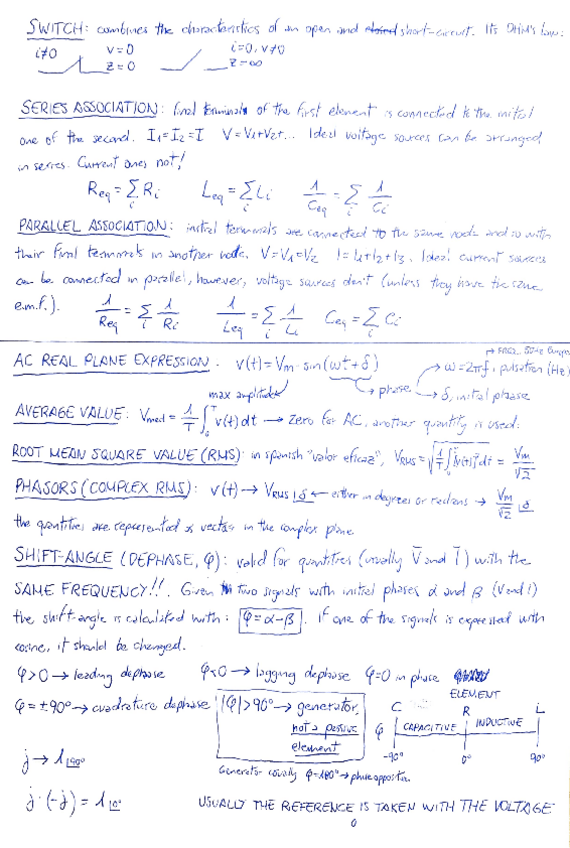 SWITCH: combines the characteristics of an open and short-circuit. Its OHM's law:
i≠0 v=0 i=0, v≠0
z=0 z=∞
SERIES ASSOCIATION: final terminals of the first element is connected to the initial
one of the second. I₁=I₂=I V=V₁+V₂+... Ideal voltage sources can be arranged
in series. Current ones not!
Req = Σi Ri Leq = Σi Li 1/Ceq = Σi 1/Ci
PARALLEL ASSOCIATION: initial terminals are connected to the same node and so with
their final terminals in another node. V=V₁=V₂ I=I₁+I₂+I₃. Ideal current sources
can be connected in parallel, however, voltage sources don't (unless they have the same
e.m.f.). 1/Req = Σi 1/Ri 1/Leq = Σi 1/Li Ceq = Σi Ci
AC REAL PLANE EXPRESSION. v(t)=Vm·sin(ωt+δ) → ω=2πf, pulsation (Hz)
max amplitude → phase → δ, initial phase
AVERAGE VALUE: Vmed = 1/T ∫₀ᵀ v(t)dt → zero for AC, another quantity is used:
ROOT MEAN SQUARE VALUE (RMS): in spanish "valor eficaz", VRMS = √(1/T ∫₀ᵀ v²(t)dt) = Vm/√2
PHASORS (COMPLEX RMS): v(t) → VRMS |δ ← either in degrees or radians → Vm/√2 |δ
the quantities are represented as vectors in the complex plane
SHIFT-ANGLE (DEPHASE, φ): valid for quantities (usually V̅ and I̅) with the
SAME FREQUENCY!!. Given two signals with initial phases α and β (V and I)
the shift-angle is calculated with: φ=α-β. If one of the signals is expressed with
cosine, it should be changed.
φ>0 → leading dephase φ<0 → lagging dephase φ=0 in phase
ELEMENT
φ=±90° → quadrature dephase |φ|>90° → generator, C R L
not a passive φ CAPACITIVE INDUCTIVE
element -90° 0° 90°
j → 1|90°
Generator usually φ=180° → phase opposition
j·(-j) = 1|0° USUALLY THE REFERENCE IS TAKEN WITH THE VOLTAGE